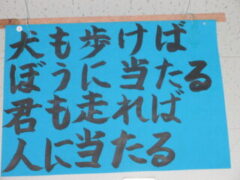 犬も歩けば
ぼうに当たる
君も走れば
人に当たる